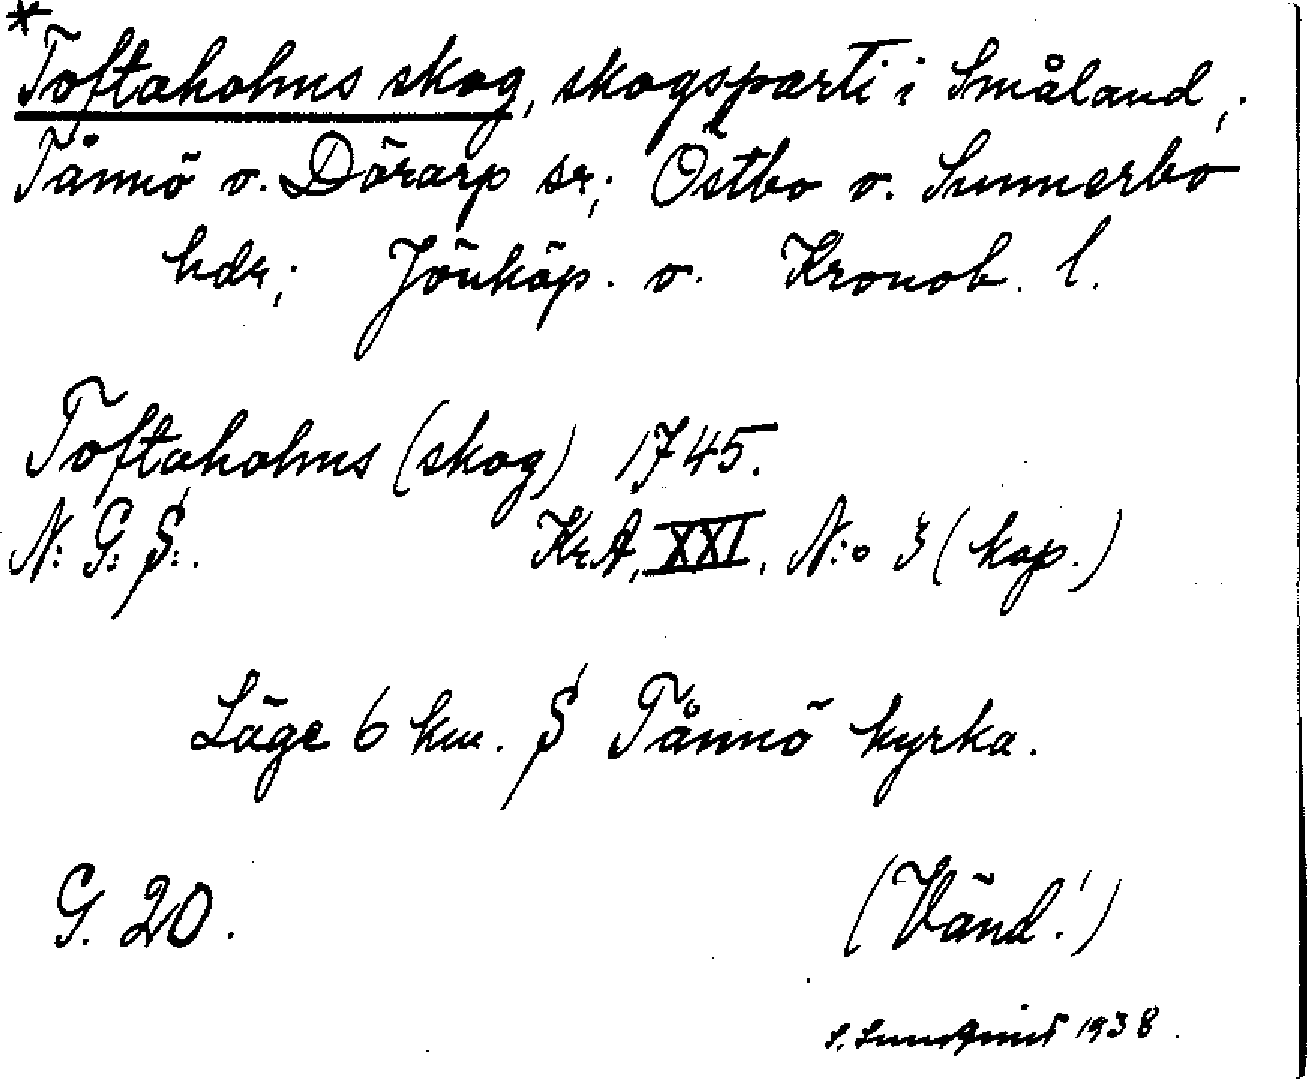 * Toftaholms skog, skogsparti i Småland;
Tånnö o. Dörarp sr; Östbo o. Sunnerbo
hdr; Jönköp. o. Kronob. l.
Toftaholms (skog) 1745.
N: G: S:. Kr.A. XXI. N:o 3 (kop.)
Läge 6 km. S Tånnö kyrka.
G. 20. (Vänd!)
S. 1938.